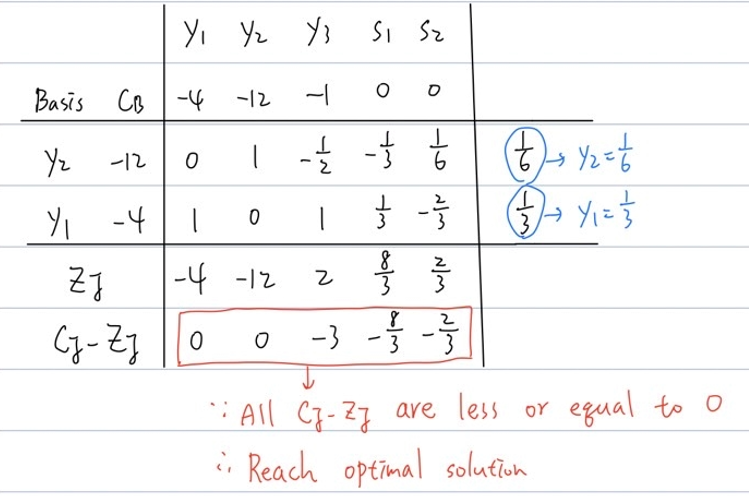 Y₁ Y₂ Y₃ S₁ S₂
Basis CB -4 -12 -1 0 0
Y₂ -12 0 1 -1/2 -1/3 1/6 1/6 → Y₂=1/6
Y₁ -4 1 0 1 1/3 -2/3 1/3 → Y₁=1/3
ZJ -4 -12 2 8/3 2/3
CJ-ZJ 0 0 -3 -8/3 -2/3
∵ All CJ-ZJ are less or equal to 0
∴ Reach optimal solution